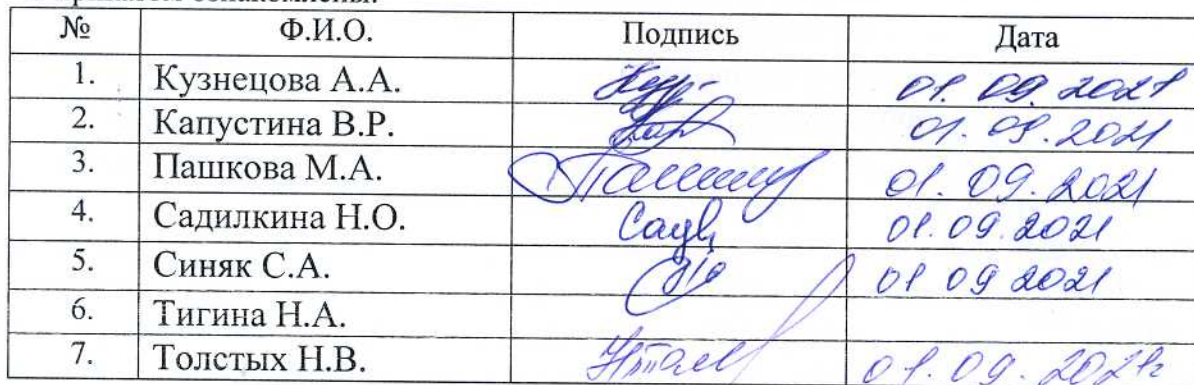 ознакомлены.
№ Ф.И.О. Подпись Дата
1. Кузнецова А.А. 01.09.2021
2. Капустина В.Р. 01.09.2021
3. Пашкова М.А. 01.09.2021
4. Садилкина Н.О. 01.09.2021
5. Синяк С.А. 01 09 2021
6. Тигина Н.А.
7. Толстых Н.В. 01.09.2021г